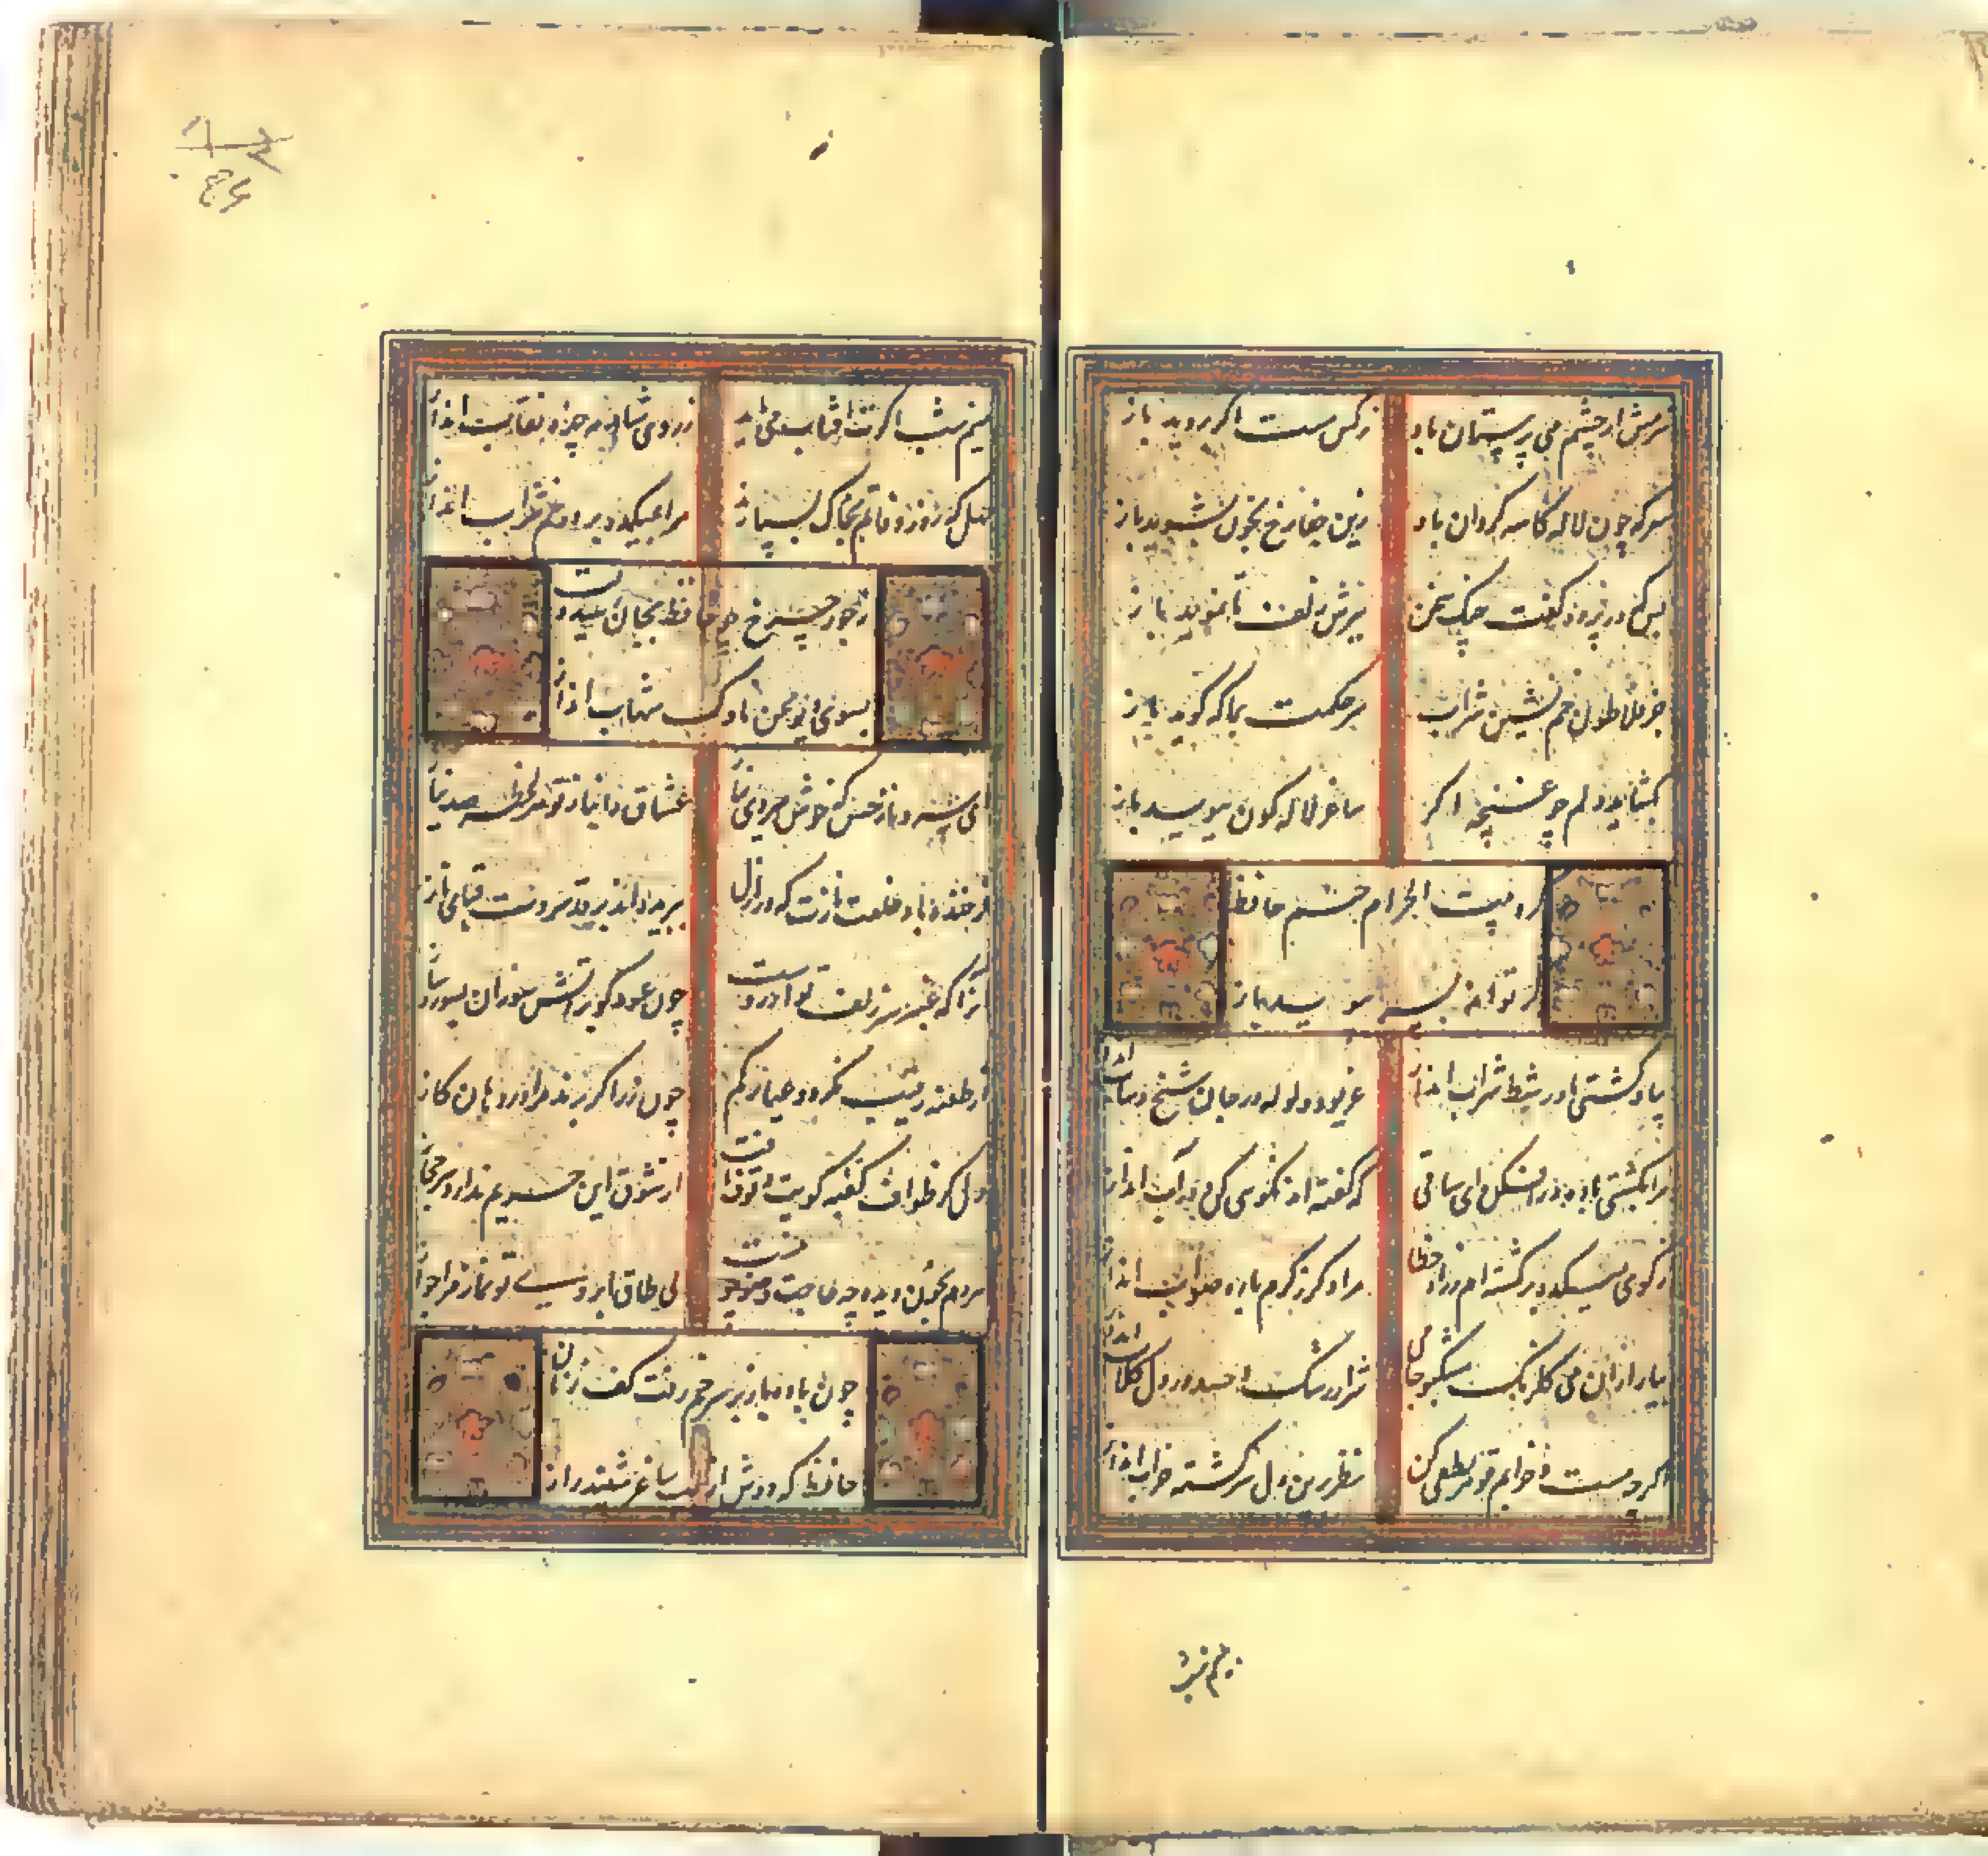 شرمش از چشم می پرستان باد نرکس مست اکر بروید باز
هر که چون لاله کاسه کردان باد زین جفا رخ بخون بشوید باز
بس که در پرده کفت چنک سخن ببرش زلف تا نموید باز
جز فلاطون خم نشین شراب سر حکمت بما که کوید باز
نکشاید دلم چو غنچه اکر ساغر لاله کون نبوید باز
کرد بیت الحرام خم حافظ
کر تواند بسر بپوید باز
بیا و کشتی ما در شط شراب انداز غریو و ولوله در جان شیخ و شاب انداز
مرا بکشتی باده در افکن ای ساقی که کفته اند نکویی کن و در آب انداز
ز کوی میکده برکشته ام ز راه خطا مرا دکر ز کرم با ره صواب انداز
بیار از ان می کلرنک مشکبو جامی شرار رشک و حسد در دل کلاب انداز
اکر چه مست و خرابم تو نیز لطفی کن نظر برین دل سرکشته خراب انداز
بنیم شب
بنیم شب اکرت افتاب می باید ز روی شاهد نقاب انداز
مهل که روز وفاتم بخاک بسپارند مرا بمیکده بر در خم شراب انداز
ز جور چرخ چو حافظ بجان رسید دلت
بسوی دیو محن ناوک شهاب انداز
ای سرو ناز حسن که خوش میروی بناز عشاق را بناز تو هر لحظه صد نیاز
فرخنده باد خلعت نازت که در ازل ببریده اند بر قد سروت قبای ناز
آنرا که عنبر سر زلف تو آرزوست چون عود کو بر اتش سوزان بسوز و ساز
از طعنه رقیب نکردد عیار کم چون زر اکر برند مرا در دهان کاز
دل کز طواف کعبه کویت وقوف یافت از شوق این حریم ندارد سر حجاز
هر دم بخون دیده چه حاجت وضو چو نیست بی طاق ابروی تو نماز مرا جواز
چون باده باز بر سر خم رفت کف زنان
حافظ که دوش از لب ساغر شنید راز